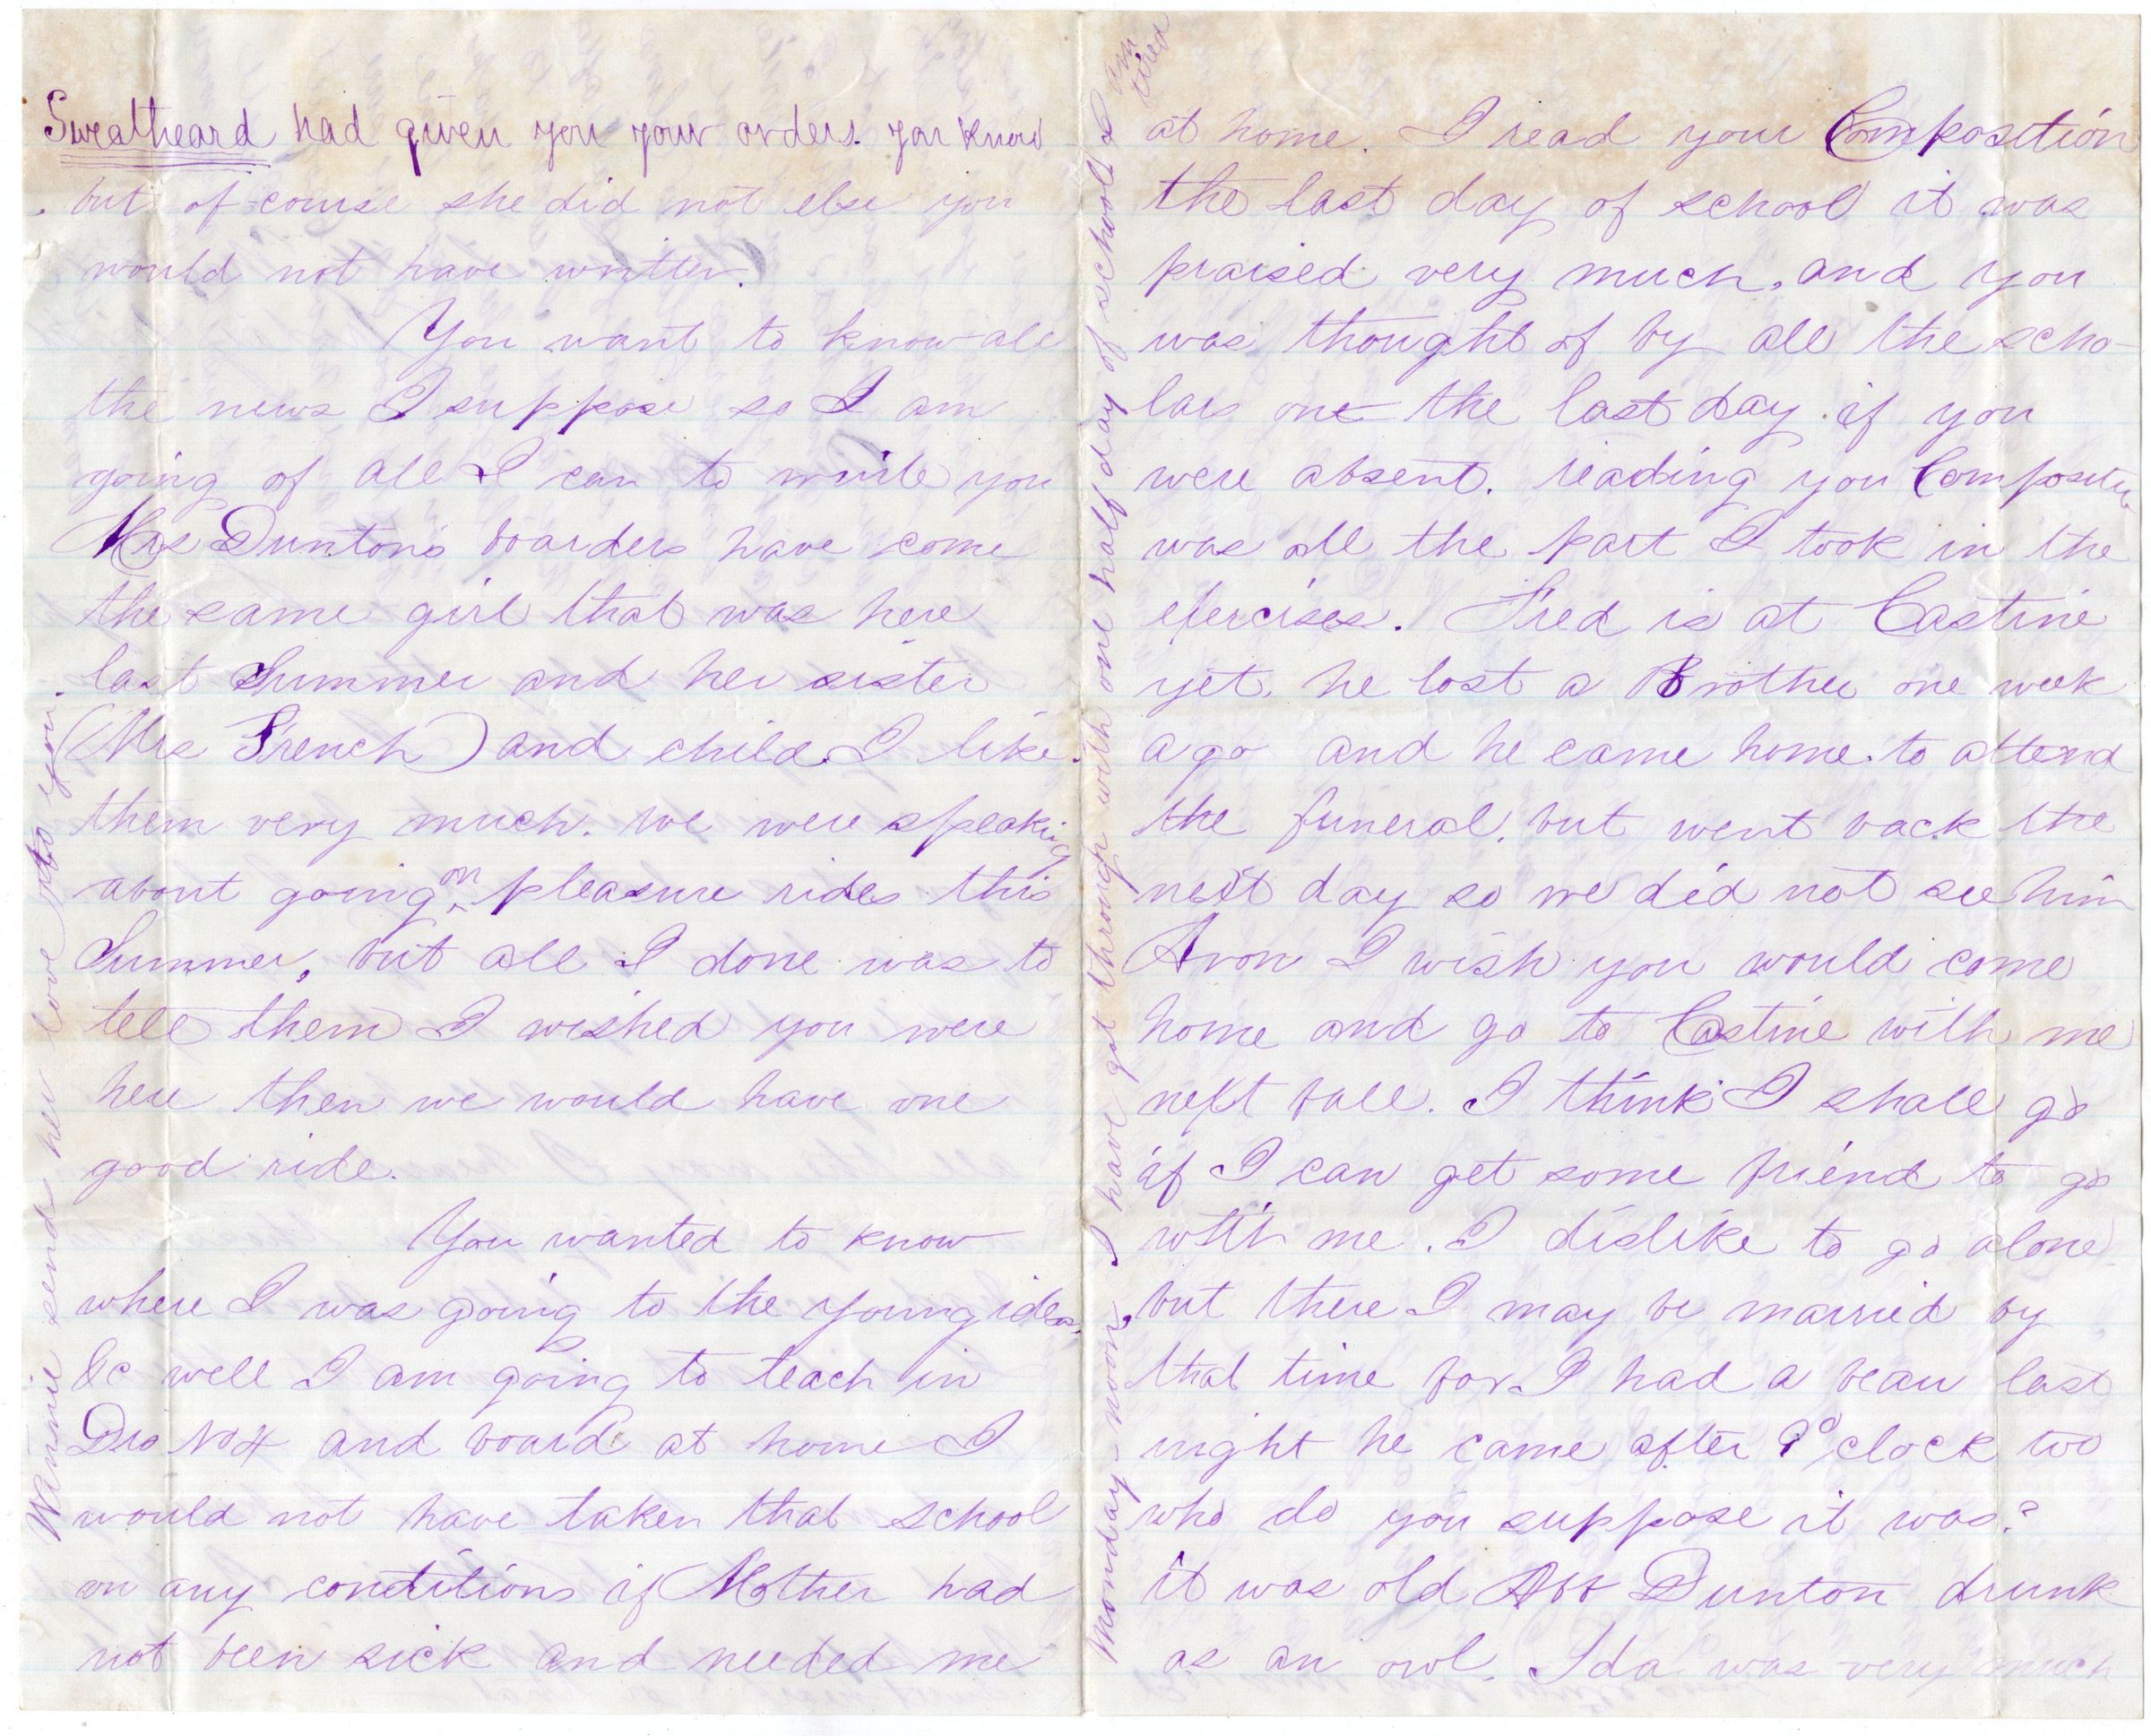 Sweatheard had given you your orders. you know
but of course she did not else you
would not have written.
You want to know all
the news I suppose so I am
going of all I can to write you
Mrs Dunton's boarders have come
the same girl that was here
last Summer and her sister
(Mrs French) and child. I like
them very much. we were speaking
about going on pleasure rides this
Summer, but all I done was to
tell them I wished you were
here then we would have one
good ride.
You wanted to know
where I was going to the young ideas.
&c well I am going to teach in
Dis No 4 and board at home I
would not have taken that school
on any conditions if Mother had
not been sick and needed me
Winnie sends her love to you.
at home. I read your Composition
the last day of school it was
praised very much, and you
was thought of by all the scho-
lars one the last day if you
were absent. reading you Composition
was all the part I took in the
exercises. Fred is at Castine
yet. he lost a Brother one week
ago and he came home to attend
the funeral, but went back the
next day so we did not see him
Avon I wish you would come
home and go to Castine with me
next fall. I think I shall go
if I can get some friend to go
with me. I dislike to go alone
but there I may be married by
that time for I had a beau last
night he came after 9 o'clock too
who do you suppose it was?
it was old Dunton drunk
as an owl. Ida was very much
Monday-noon. I have got through with one half day of school & I
am
tired